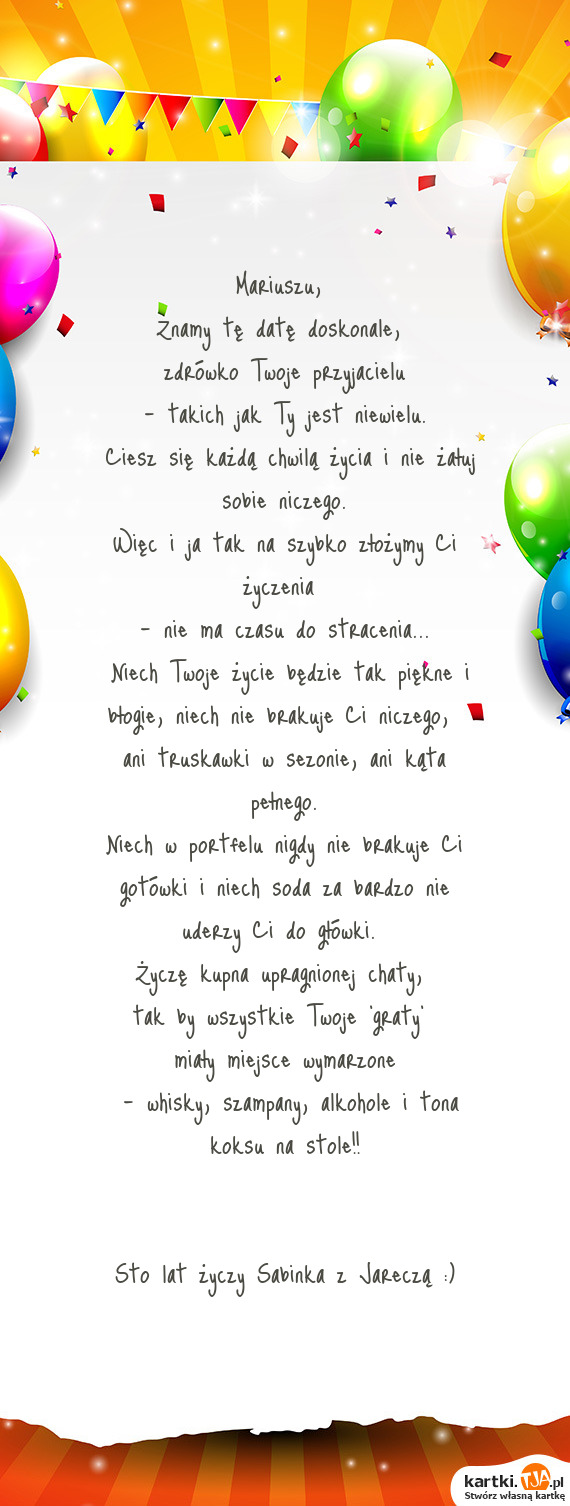 Mariuszu,
Znamy tę datę doskonale,
zdrówko Twoje przyjacielu
- takich jak Ty jest niewielu.
Ciesz się każdą chwilą życia i nie żałuj
sobie niczego.
Więc i ja tak na szybko złożymy Ci
życzenia
- nie ma czasu do stracenia...
Niech Twoje życie będzie tak piękne i
błogie, niech nie brakuje Ci niczego,
ani truskawki w sezonie, ani kąta
pełnego.
Niech w portfelu nigdy nie brakuje Ci
gotówki i niech soda za bardzo nie
uderzy Ci do główki.
Życzę kupna upragnionej chaty,
tak by wszystkie Twoje 'graty'
miały miejsce wymarzone
- whisky, szampany, alkohole i tona
koksu na stole!!
Sto lat życzy Sabinka z Jareczą :)
kartki.TJA.pl
Stwórz własną kartkę